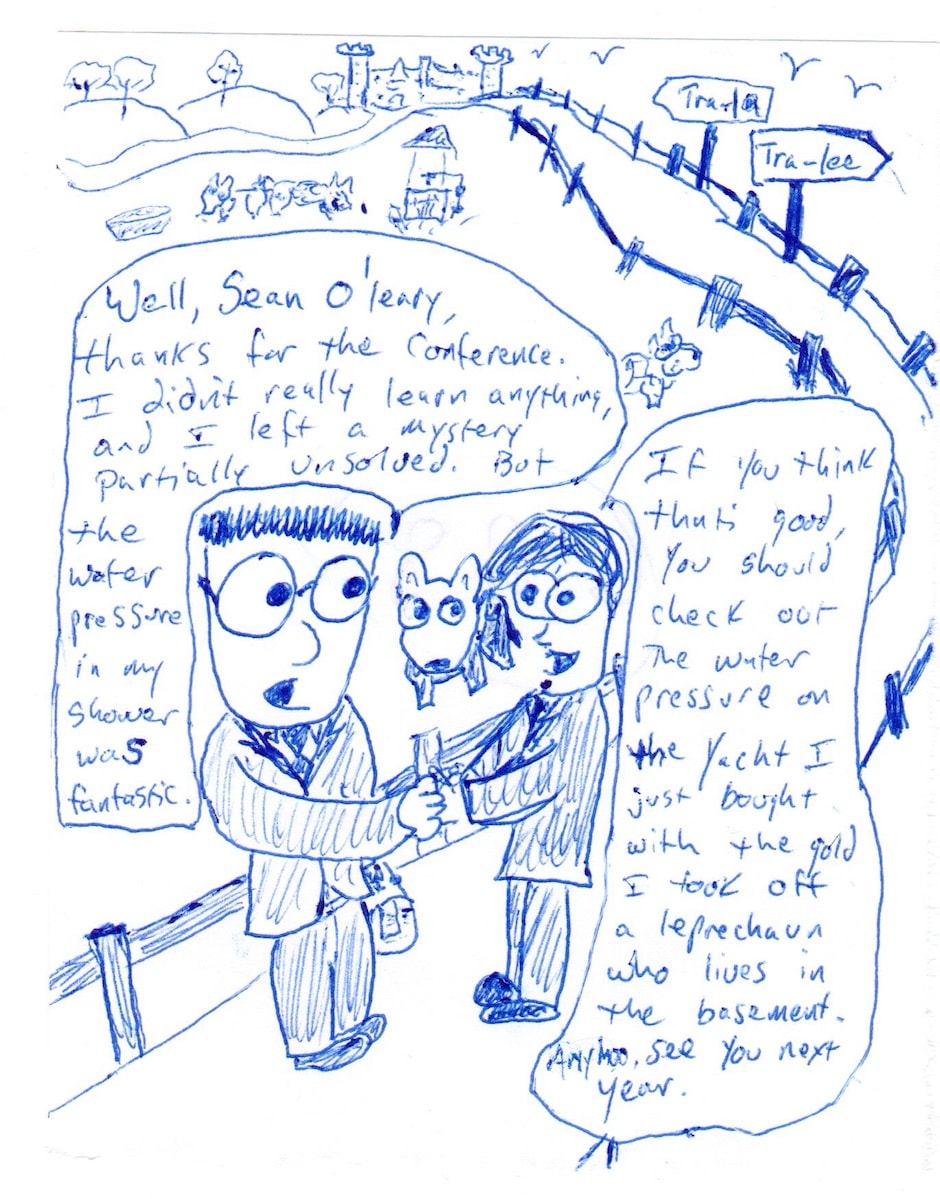 Tra-la
Tra-lee
Well, Sean O'leary,
thanks for the Conference.
I didn't really learn anything,
and I left a mystery
partially unsolved. But
the
water
pressure
in my
shower
was
fantastic.
If you think
that's good,
you should
check out
the water
pressure on
the yacht I
just bought
with the gold
I took off
a leprechaun
who lives in
the basement.
Anyhoo, see you next
year.